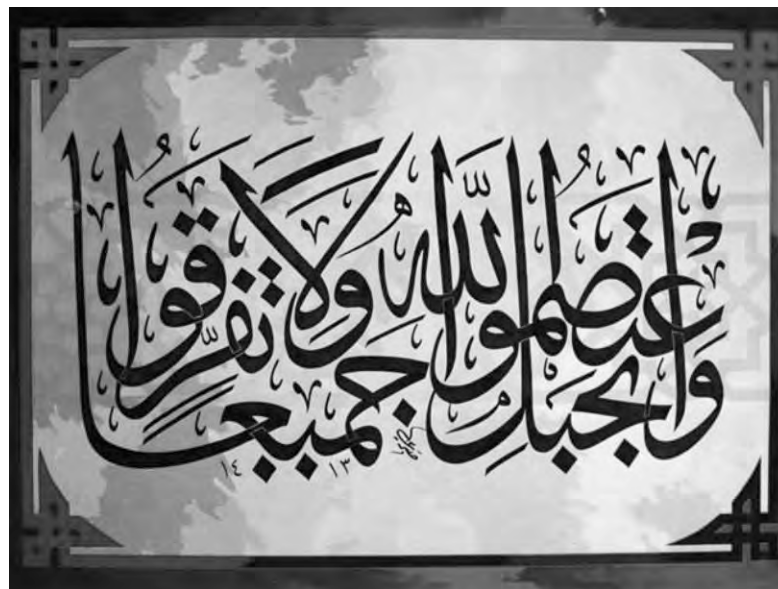 واعتصموا بحبل الله جميعا ولا تفرقوا
١٤ ١٣